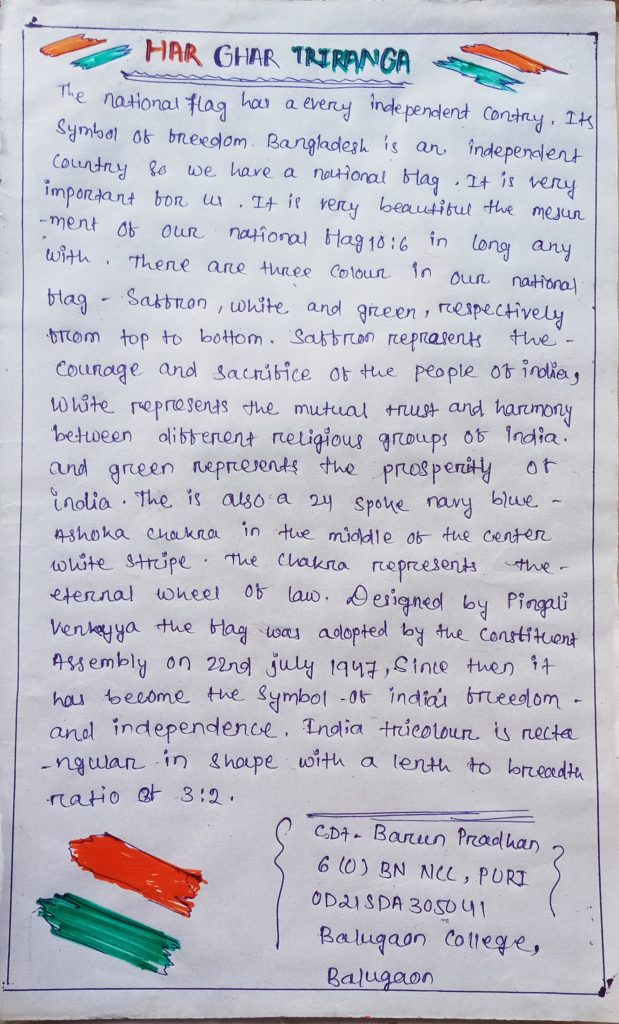 HAR GHAR TRIRANGA
The national flag has a every independent contry. Its
Symbol of freedom. Bangladesh is an independent
country so we have a national flag. It is very
important for us. It is very beautiful the mesur
-ment of our national flag 10:6 in long any
with. There are three colour in our national
flag - Saffron, white and green, respectively
from top to bottom. Saffron reprasents the-
courage and sacrifice of the people of india,
White represents the mutual trust and harmony
between different religious groups of India.
and green represents the prosperity of
india. The is also a 24 spoke navy blue -
Ashoka chakra in the middle of the center
white stripe. The chakra represents the-
eternal wheel of law. Designed by Pingali
Venkayya the flag was adopted by the Constituent
Assembly on 22nd july 1947, Since then it
has become the Symbol -of india's freedom -
and independence. India tricolour is recta
-ngular in shape with a lenth to breadth
ratio of 3:2.
CDT- Barun Pradhan
6 (O) BN NCC, PURI
OD21SDA305041
Balugaon College,
Balugaon